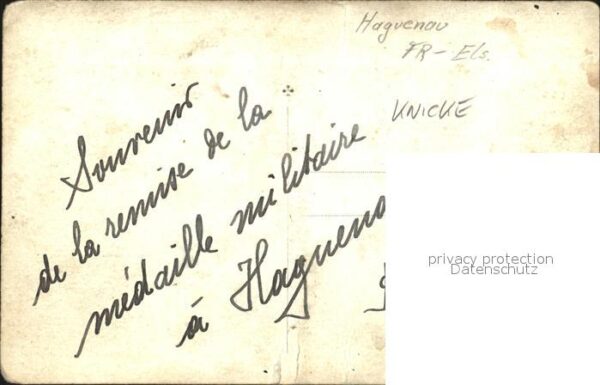 Haguenau
FR-Els.
KNICKE
Souvenir
de la remise de la
médaille militaire
à Haguena
privacy protection
Datenschutz